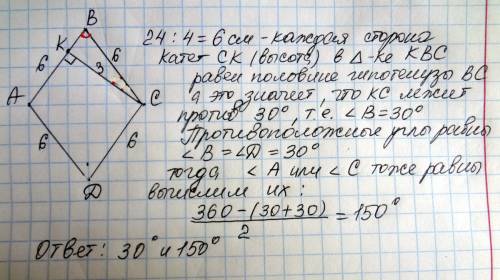 В
К
6
6
3
А
С
6
6
D
24 : 4 = 6 см - каждая сторона
Катет СК (высота) в Δ-ке КВС
равен половине гипотенузы ВС
а это значит, что КС лежит
против 30°, т.е. ∠В=30°
Противоположные углы равны
∠В = ∠D = 30°
тогда ∠А или ∠С тоже равны
вычислим их:
360 - (30+30)
/ 2 = 150°
Ответ: 30° и 150°